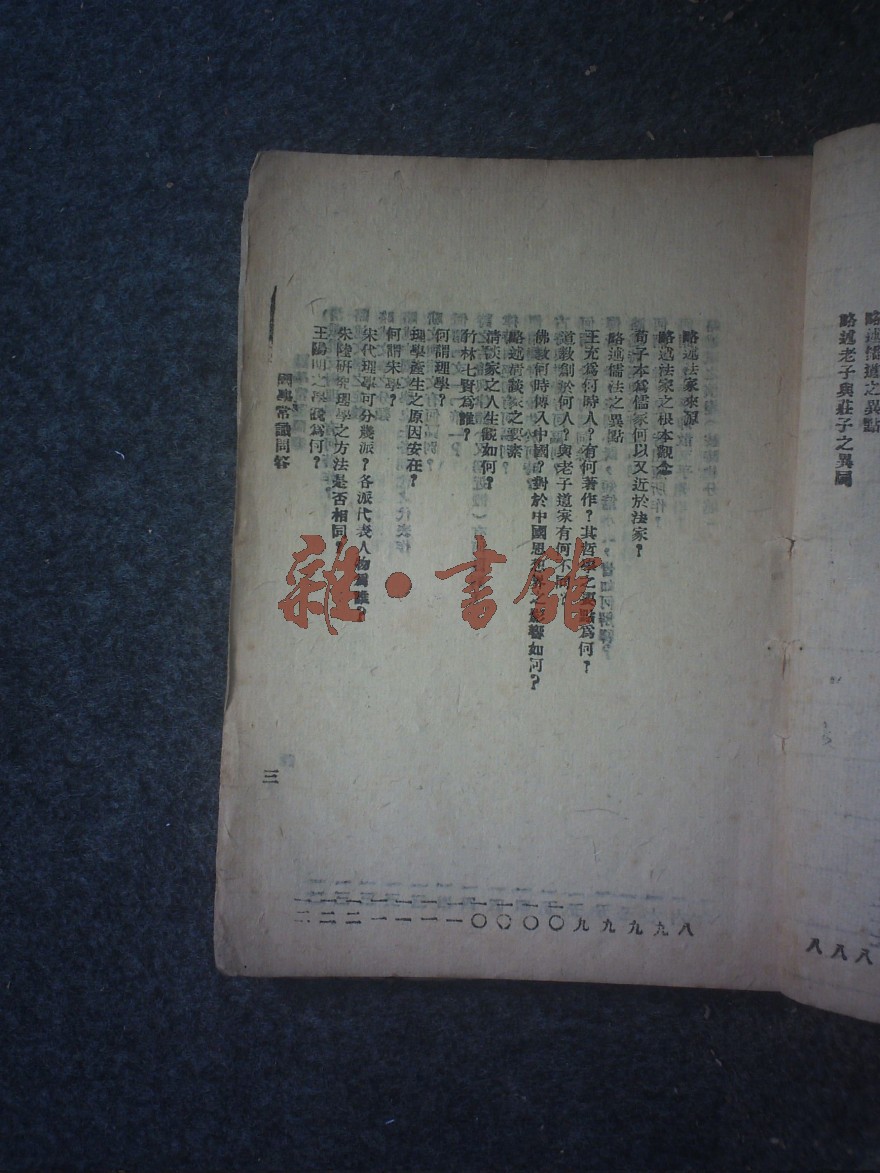 略述儒道之異點 八
略述老子與莊子之異同 八
略述法家來源 八
略述法家之根本觀念 九
荀子本爲儒家何以又近於法家？ 九
略述儒法之異點 九
王充爲何時人？有何著作？其哲學之要點爲何？ 九
道教創於何人？與老子道家有何不同？ 一〇
佛教何時傳入中國？對於中國思想界之影響如何？ 一〇
略述清談家之要素 一〇
清談家之人生觀如何？ 一〇
竹林七賢爲誰？ 一一
何謂理學？ 一一
理學產生之原因安在？ 一一
何謂宋學？ 一一
宋代理學可分幾派？各派代表人物爲誰？ 一二
朱陸研究理學之方法是否相同？ 一二
王陽明之學說爲何？ 一二
國學常識問答
三
雜·書館